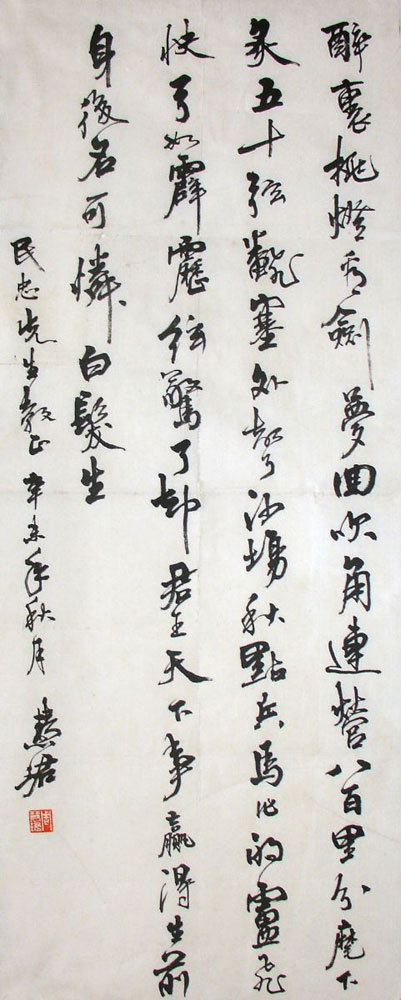 醉裏挑燈看劍夢回吹角連營八百里分麾下
炙五十弦翻塞外聲沙場秋點兵馬作的盧飛
快弓如霹靂弦驚了却君王天下事贏得生前
身後名可憐白髮生
民忠先生教正辛未年秋月慧珺